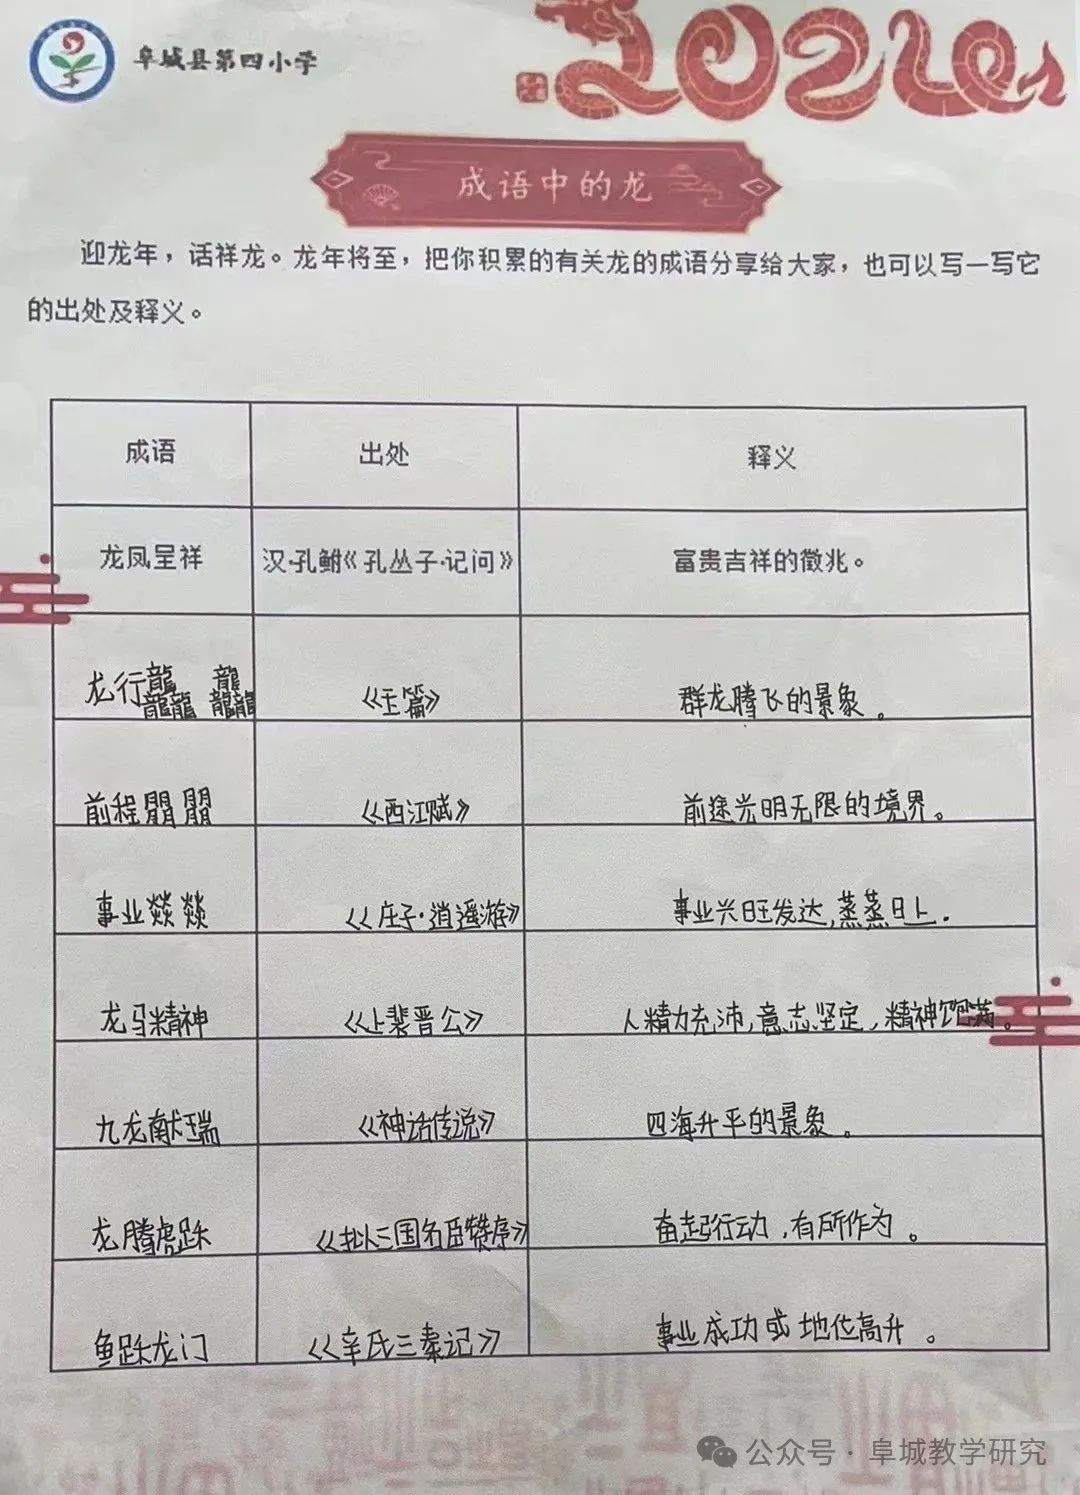 阜城县第四小学
2024
成语中的龙
迎龙年，话祥龙。龙年将至，把你积累的有关龙的成语分享给大家，也可以写一写它
的出处及释义。
成语 出处 释义
龙凤呈祥 汉·孔鲋《孔丛子·记问》 富贵吉祥的徵兆。
龙行龘龘 《玉篇》 群龙腾飞的景象。
前程朤朤 《西江赋》 前途光明无限的境界。
事业燚燚 《庄子·逍遥游》 事业兴旺发达,蒸蒸日上.
龙马精神 《上裴晋公》 人精力充沛,意志坚定,精神饱满。
九龙献瑞 《神话传说》 四海升平的景象。
龙腾虎跃 《拟三国名臣赞序》 奋起行动,有所作为。
鱼跃龙门 《辛氏三秦记》 事业成功或地位高升。
公众号·阜城教学研究